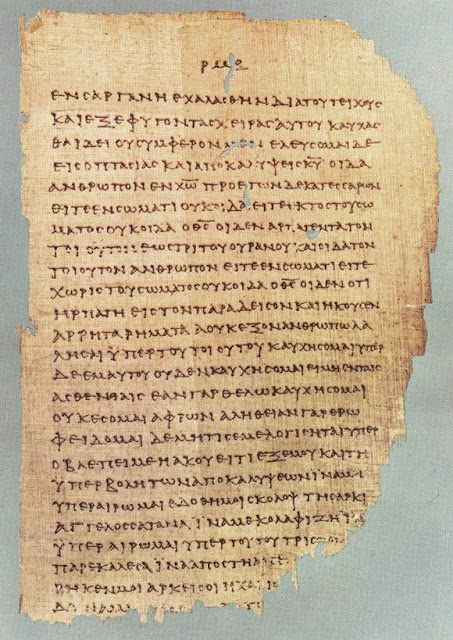 ΕΝϹΑΡΓΑΝΗΕΧΑΛΑϹΘΗΝΔΙΑΤΟΥΤΕΙΧΟΥϹ
ΚΑΙΕΞΕΦΥΓΟΝΤΑϹΧΕΙΡΑϹΑΥΤΟΥΚΑΥΧΑϹ
ΘΑΙΔΕΙΟΥϹΥΜΦΕΡΟΝΜΕΝΕΛΕΥϹΟΜΑΙΔΕ
ΕΙϹΟΠΤΑϹΙΑϹΚΑΙΑΠΟΚΑΛΥΨΕΙϹΚ̅Υ̅ΟΙΔΑ
ΑΝΘΡΩΠΟΝΕΝΧ̅Ω̅ΠΡΟΕΤΩΝΔΕΚΑΤΕϹϹΑΡΩΝ
ΕΙΤΕΕΝϹΩΜΑΤΙΟΥΚΟΙΔΑΕΙΤΕΕΚΤΟϹΤΟΥϹΩ
ΜΑΤΟϹΟΥΚΟΙΔΑΟΘ̅Ϲ̅ΟΙΔΕΝΑΡΠΑΓΕΝΤΑΤΟΝ
ΤΟΙΟΥΤΟΝΕΩϹΤΡΙΤΟΥΟΥΡΑΝΟΥΚΑΙΟΙΔΑΤΟΝ
ΤΟΙΟΥΤΟΝΑΝΘΡΩΠΟΝΕΙΤΕΕΝϹΩΜΑΤΙΕΙΤΕ
ΧΩΡΙϹΤΟΥϹΩΜΑΤΟϹΟΥΚΟΙΔΑΟΘ̅Ϲ̅ΟΙΔΕΝΟΤΙ
ΗΡΠΑΓΗΕΙϹΤΟΝΠΑΡΑΔΕΙϹΟΝΚΑΙΗΚΟΥϹΕΝ
ΑΡΡΗΤΑΡΗΜΑΤΑΑΟΥΚΕΞΟΝΑΝΘΡΩΠΩΛΑ
ΛΗϹΑΙΫΠΕΡΤΟΥΤΟΙΟΥΤΟΥΚΑΥΧΗϹΟΜΑΙΥΠΕΡ
ΔΕΕΜΑΥΤΟΥΟΥΔΕΝΚΑΥΧΗϹΟΜΑΙΕΙΜΗΕΝΤΑΙϹ
ΑϹΘΕΝΕΙΑΙϹΕΑΝΓΑΡΘΕΛΩΚΑΥΧΗϹΟΜΑΙ
ΟΥΚΕϹΟΜΑΙΑΦΡΩΝΑΛΗΘΕΙΑΝΓΑΡΕΡΩ
ΦΕΙΔΟΜΑΙΔΕΜΗΤΙϹΕΜΕΛΟΓΙϹΗΤΑΙΥΠΕΡ
ΟΒΛΕΠΕΙΜΕΗΑΚΟΥΕΙΤΙΕΞΕΜΟΥΚΑΙΤΗ
ΫΠΕΡΒΟΛΗΤΩΝΑΠΟΚΑΛΥΨΕΩΝΪΝΑΜΗ
ΥΠΕΡΑΙΡΩΜΑΙΕΔΟΘΗΜΟΙϹΚΟΛΟΨΤΗϹΑΡΚΙ
ΑΓΓΕΛΟϹϹΑΤΑΝΑΪΝΑΜΕΚΟΛΑΦΙΖΗΪ
ΫΠΕΡΑΙΡΩΜΑΙΥΠΕΡΤΟΥΤΟΥΤΡΙϹ
ΠΑΡΕΚΑΛΕϹΑΪΝΑΑΠΟϹΤΗ
ΡΗΚΕΝΜΟΙΑΡΚΕΙϹΟΙΗΧΑΡΙϹ